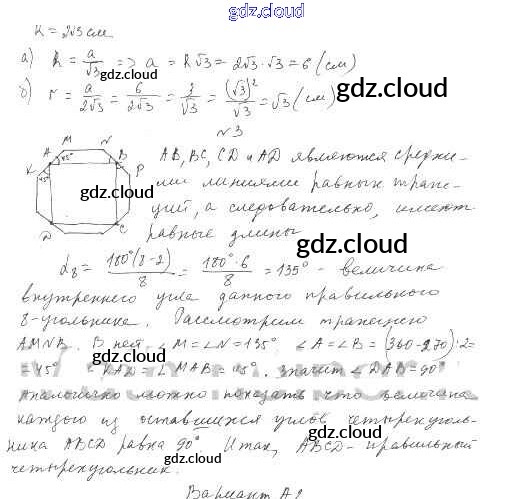 gdz.cloud
R = 2√3 см
а) R = a/√3 => a = R√3 = 2√3·√3 = 6 (см)
gdz.cloud gdz.cloud
б) r = a/2√3 = 6/2√3 = 3/√3 = (√3)²/√3 = √3 (см)
gdz.cloud
N3
M N
A 45° B
K 45° P
D C
gdz.cloud
AB, BC, CD и AD являются средни-
ми линиями равных трапе-
ций, а следовательно, имеют
равные длины
gdz.cloud
α₈ = 180°(8-2)/8 = 180°·6/8 = 135° - величина
gdz.cloud
внутреннего угла данного правильного
8-угольника. Рассмотрим трапецию
gdz.cloud
AMNB. В ней ∠M = ∠N = 135° ∠A = ∠B = (360-270):2=
gdz.cloud
= 45° ∠KAD = ∠MAB = 45°. Значит ∠DAB = 90°
Аналогично можно показать что величина
каждого из оставшихся углов четырехуголь-
gdz.cloud
ника ABCD равна 90°. Итак, ABCD - правильный
четырехугольник.
gdz.cloud
Вариант А2